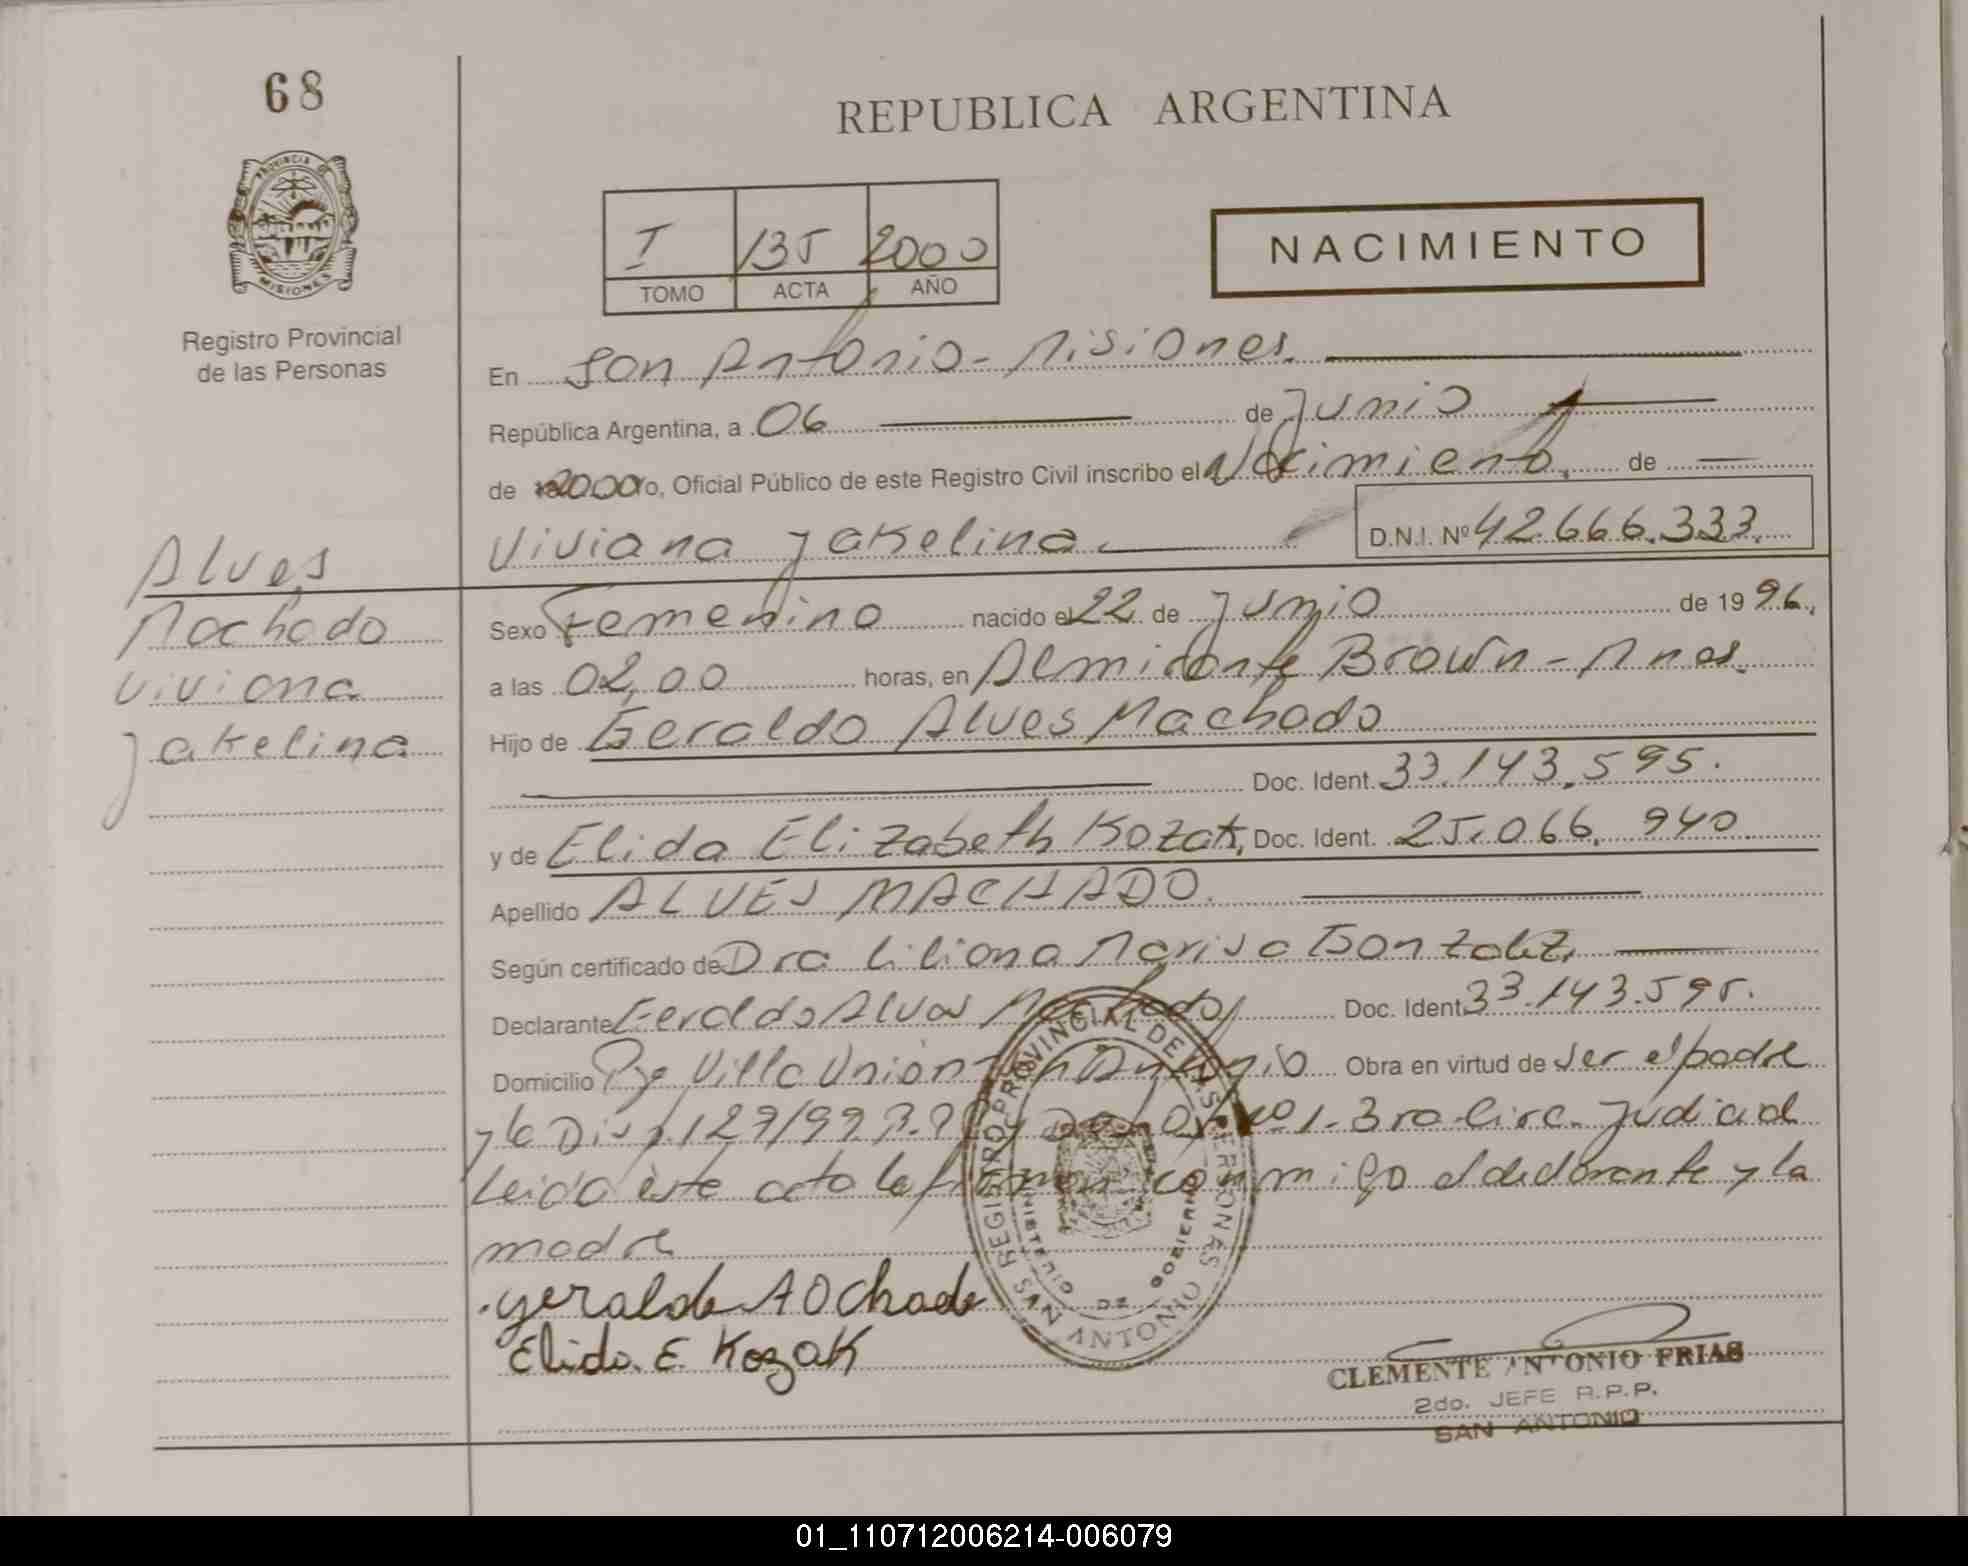 68
REPUBLICA ARGENTINA
PROVINCIA DE
MISIONES
Registro Provincial
de las Personas
I 135 2000
TOMO ACTA AÑO
NACIMIENTO
En San Antonio - Misiones.
República Argentina, a 06 de Junio
de 2000 o, Oficial Público de este Registro Civil inscribo el Nacimiento, de
Viviana Jakelina D.N.I. Nº 42.666.333.
Alves
Machado
Viviana
Jakelina
Sexo Femenino nacido el 22 de Junio de 1996,
a las 02,00 horas, en Almirante Brown - Mnes.
Hijo de Geraldo Alves Machado
Doc. Ident. 33.143.595.
y de Elida Elizabeth Kozak, Doc. Ident. 25.066.940
Apellido ALVES MACHADO.
Según certificado de Dra Liliana Marisa Gonzalez,
Declarante Geraldo Alves Machado, Doc. Ident. 33.143.595.
Domicilio Pje Villa Unión San Antonio Obra en virtud de ser el padre
y la Disp. 129/99 Nº 1. 3ra Circ. Judicial
Leida este acta la firman conmigo el declarante y la
madre
REGISTRO PROVINCIAL DE LAS PERSONAS
MINISTERIO DE GOBIERNO
SAN ANTONIO
Elida. E. Kozak
CLEMENTE ANTONIO FRIAS
2do. JEFE R.P.P.
SAN ANTONIO
01_110712006214-006079